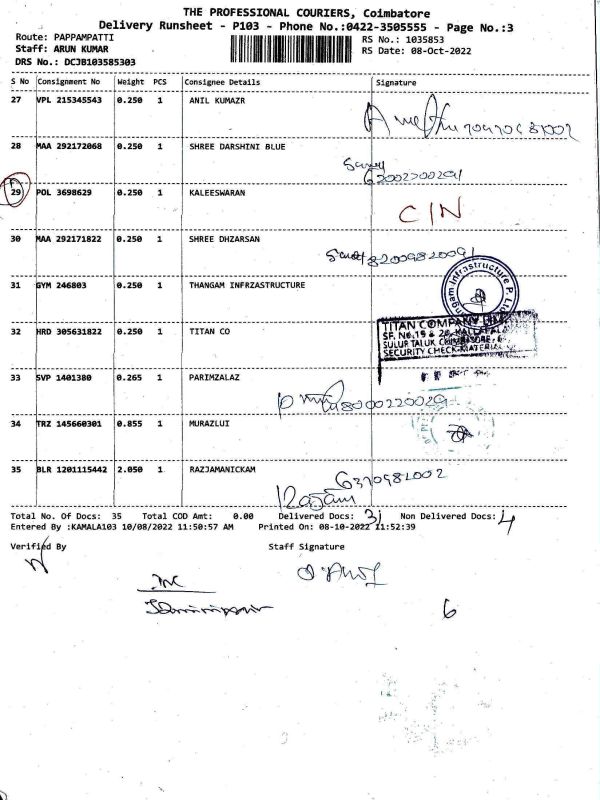 THE PROFESSIONAL COURIERS, Coimbatore
Delivery Runsheet - P103 - Phone No.:0422-3505555 - Page No.:3
Route: PAPPAMPATTI RS No.: 1035853
Staff: ARUN KUMAR RS Date: 08-Oct-2022
DRS No.: DCJB103585303
S No Consignment No Weight PCS Consignee Details Signature
27 VPL 215345543 0.250 1 ANIL KUMAZR
28 MAA 292172068 0.250 1 SHREE DARSHINI BLUE
29 POL 3698629 0.250 1 KALEESWARAN
C/N
30 MAA 292171822 0.250 1 SHREE DHZARSAN
31 GYM 246803 0.250 1 THANGAM INFRZASTRUCTURE
32 HRD 305631822 0.250 1 TITAN CO
TITAN COMPANY
SULUR TALUK
SECURITY CHECK
33 SVP 1401380 0.265 1 PARIMZALAZ
34 TRZ 145660301 0.855 1 MURAZLUI
35 BLR 1201115442 2.050 1 RAZJAMANICKAM
Total No. Of Docs: 35 Total COD Amt: 0.00 Delivered Docs: 31 Non Delivered Docs: 4
Entered By :KAMALA103 10/08/2022 11:50:57 AM Printed On: 08-10-2022 11:52:39
Verified By Staff Signature
6